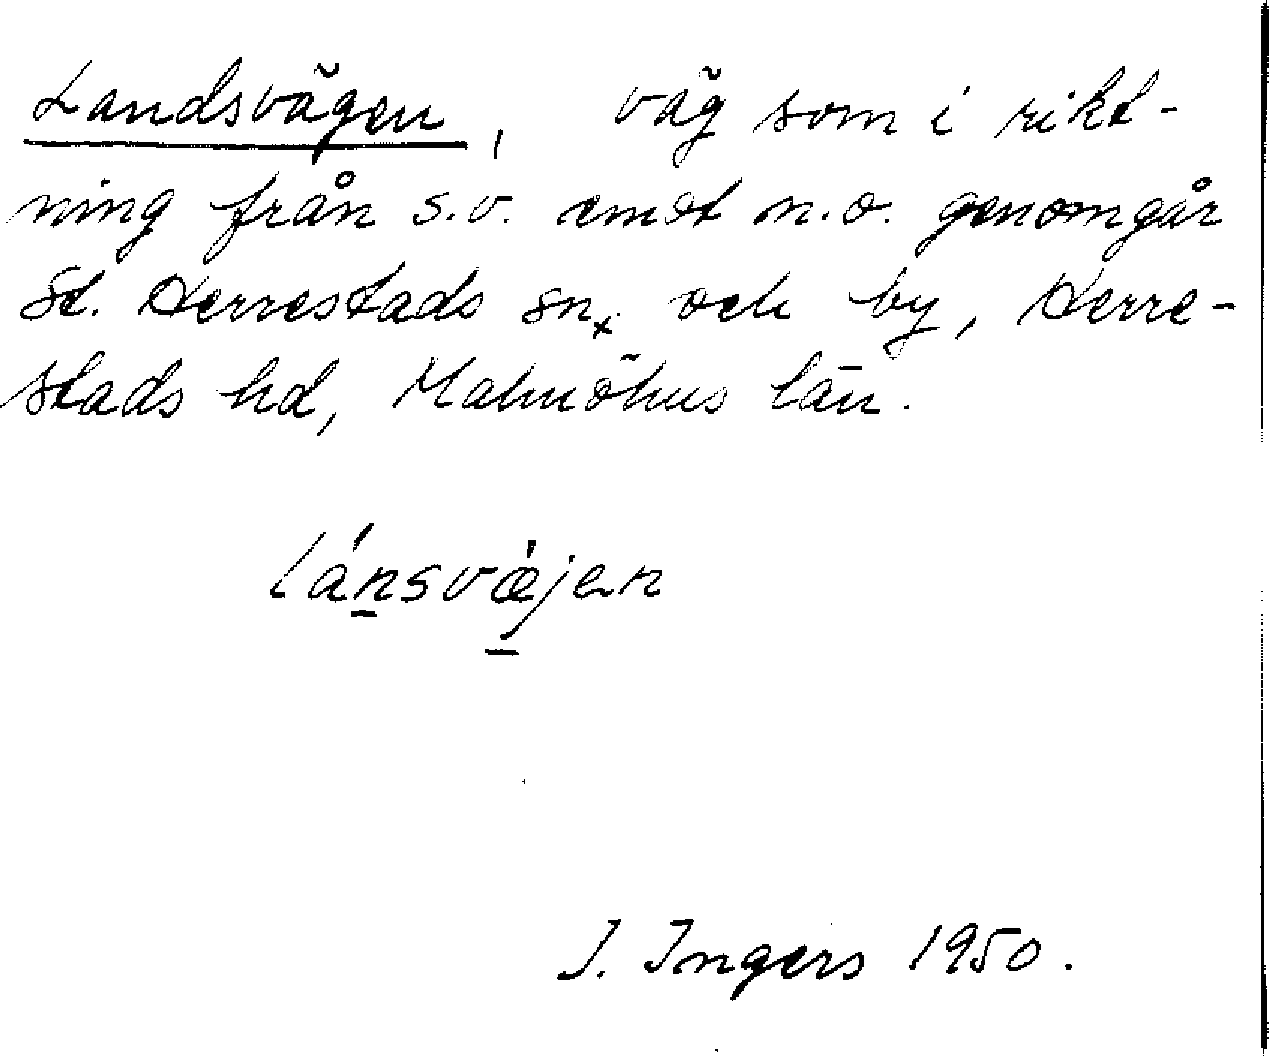 Landsvägen, väg som i rikt-
ning från s.v. emot n.o. genomgår
St. Herrestads sn, och by, Herre-
stads hd, Malmöhus län.
lánsvǽjen
I. Ingers 1950.